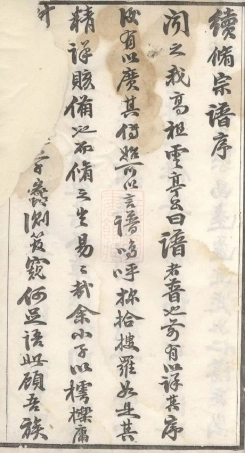 續脩宗譜序
聞之我高祖雲亭公曰譜者普也前有以詳其序
後有以廣其傳始可以言譜嗚呼採拾搜羅如此其
精詳賅備也而脩之豈易易哉余小子以樗櫟庸
才
蠡測管窺何足語此顧吾族